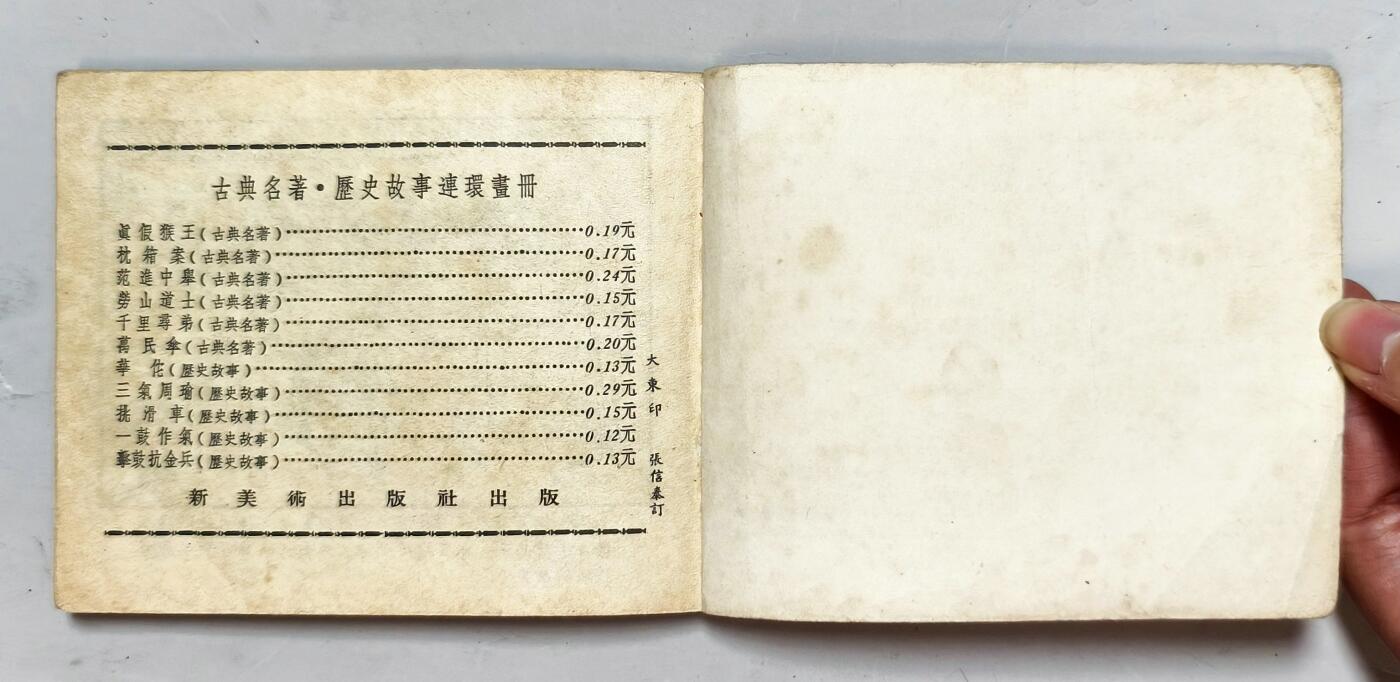 古典名著•歷史故事連環畫冊
眞假猴王(古典名著)………0.19元
枕箱案(古典名著)………0.17元
范進中舉(古典名著)………0.24元
勞山道士(古典名著)………0.15元
千里尋弟(古典名著)………0.17元
萬民傘(古典名著)………0.20元
華佗(歷史故事)………0.13元
三氣周瑜(歷史故事)………0.29元
挑滑車(歷史故事)………0.15元
一鼓作氣(歷史故事)………0.12元
擊鼓抗金兵(歷史故事)………0.13元
新美術出版社出版
大東印
張信泰訂